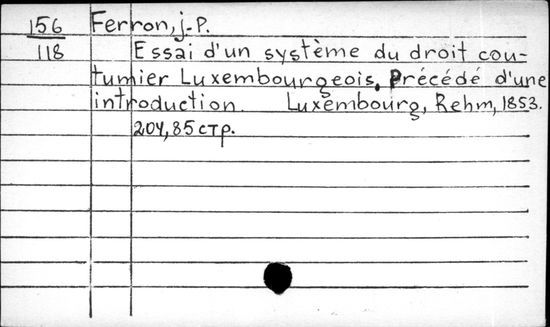 156 Ferron, j.-P.
118 Essai d'un système du droit cou-
tumier Luxembourgeois. Précédé d'une
introduction. Luxembourg, Rehm, 1853.
204, 85 стр.